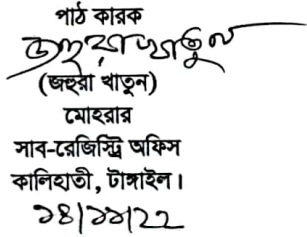 পাঠ কারক
জহুরা খাতুন
(জহুরা খাতুন)
মোহরার
সাব-রেজিস্ট্রি অফিস
কালিহাতী, টাঙ্গাইল।
১৪/১১/২২